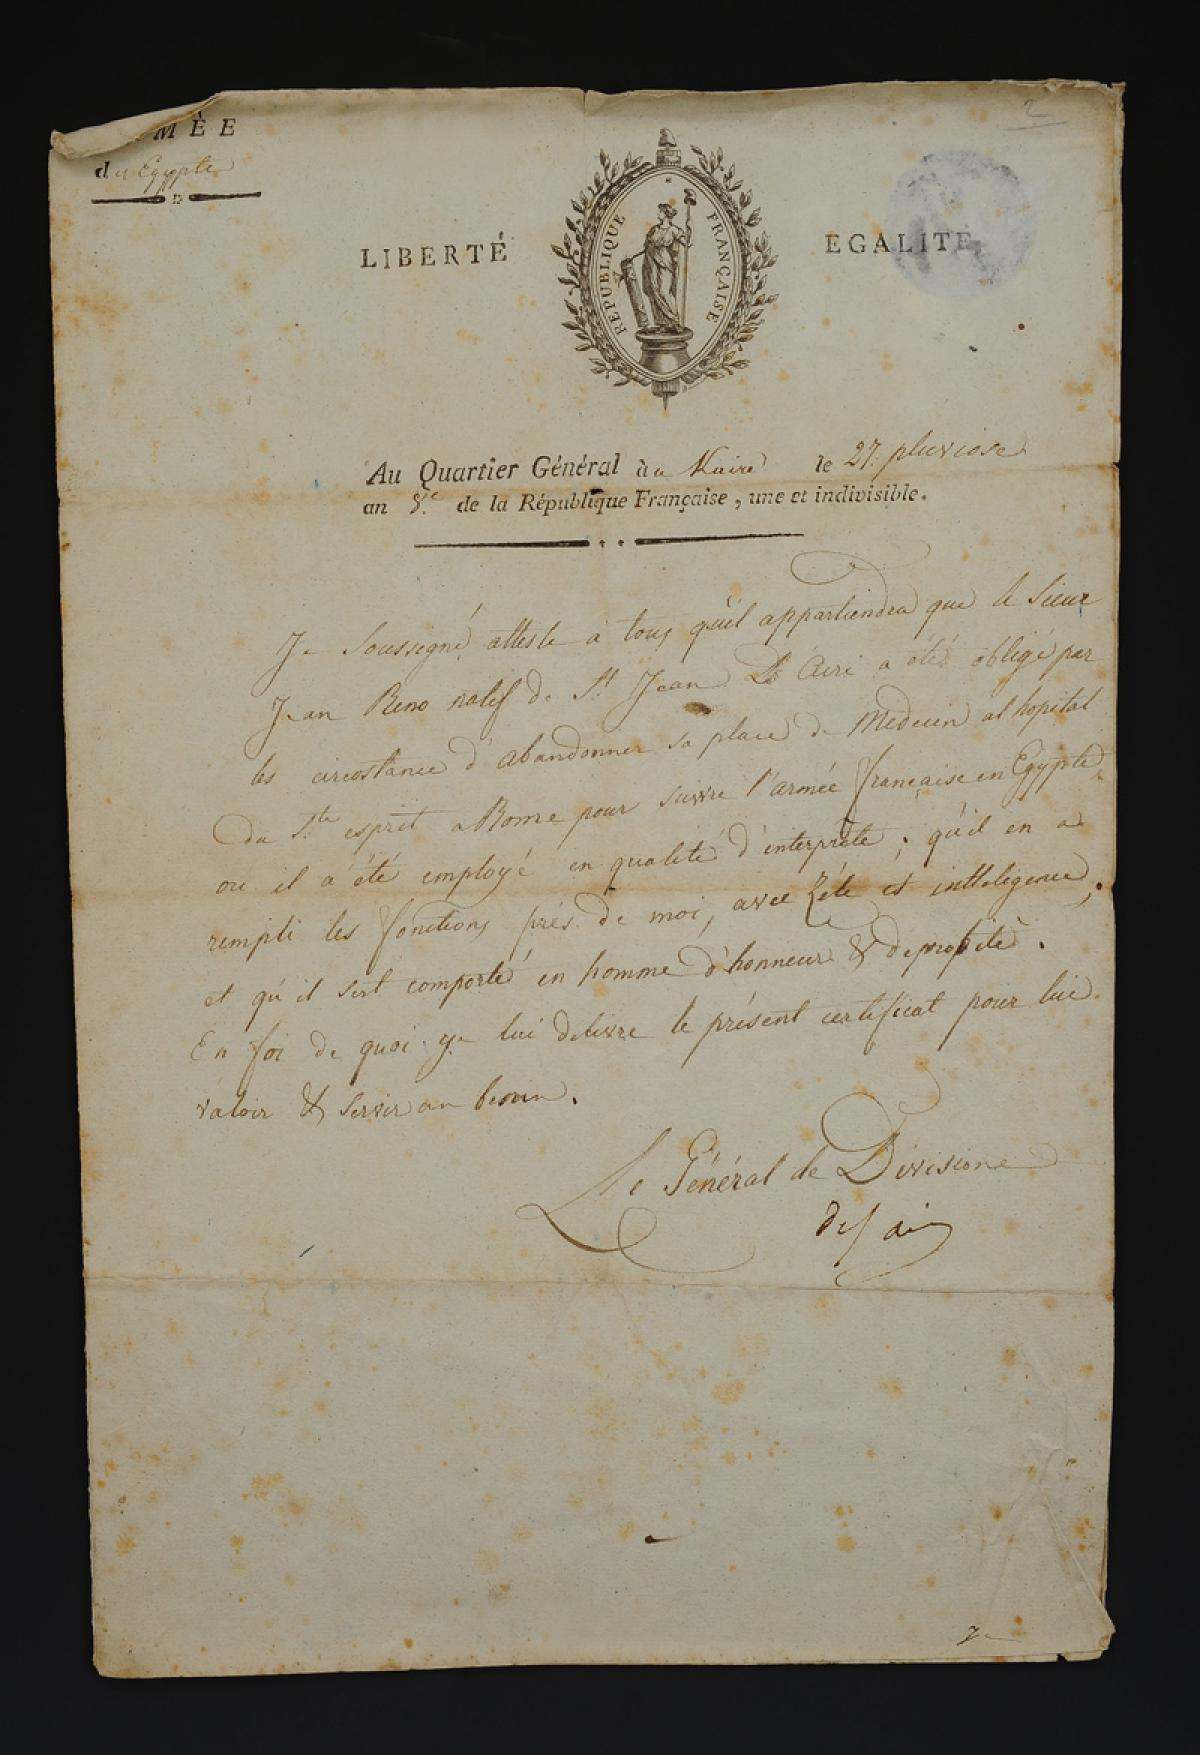 MÈE
du Egypte
2
LIBERTÉ
RÉPUBLIQUE FRANÇAISE
EGALITÉ
Au Quartier Général au Kaire le 27. pluviose
an 8.e de la République Française, une et indivisible.
Je Soussigné, atteste a tous qu'il appartiendra que le Sieur
Jean Reno natif de St Jean D'Acri a été obligé par
les circostance d'abandonner sa place de Medecin al hopital
du S.te esprit a Rome pour suivre l'armée française en Egypte
ou il a été employé en qualité d'interpréte; qu'il en a
rempli les fonctions prés de moi, avec Zéle et inttelegence;
et qu'il s'est comporté en homme d'honneur & de probité.
En foi de quoi je lui delivre le présent certificat pour lui
valoir & servir au besoin.
Le Général de Divisione
Desaix